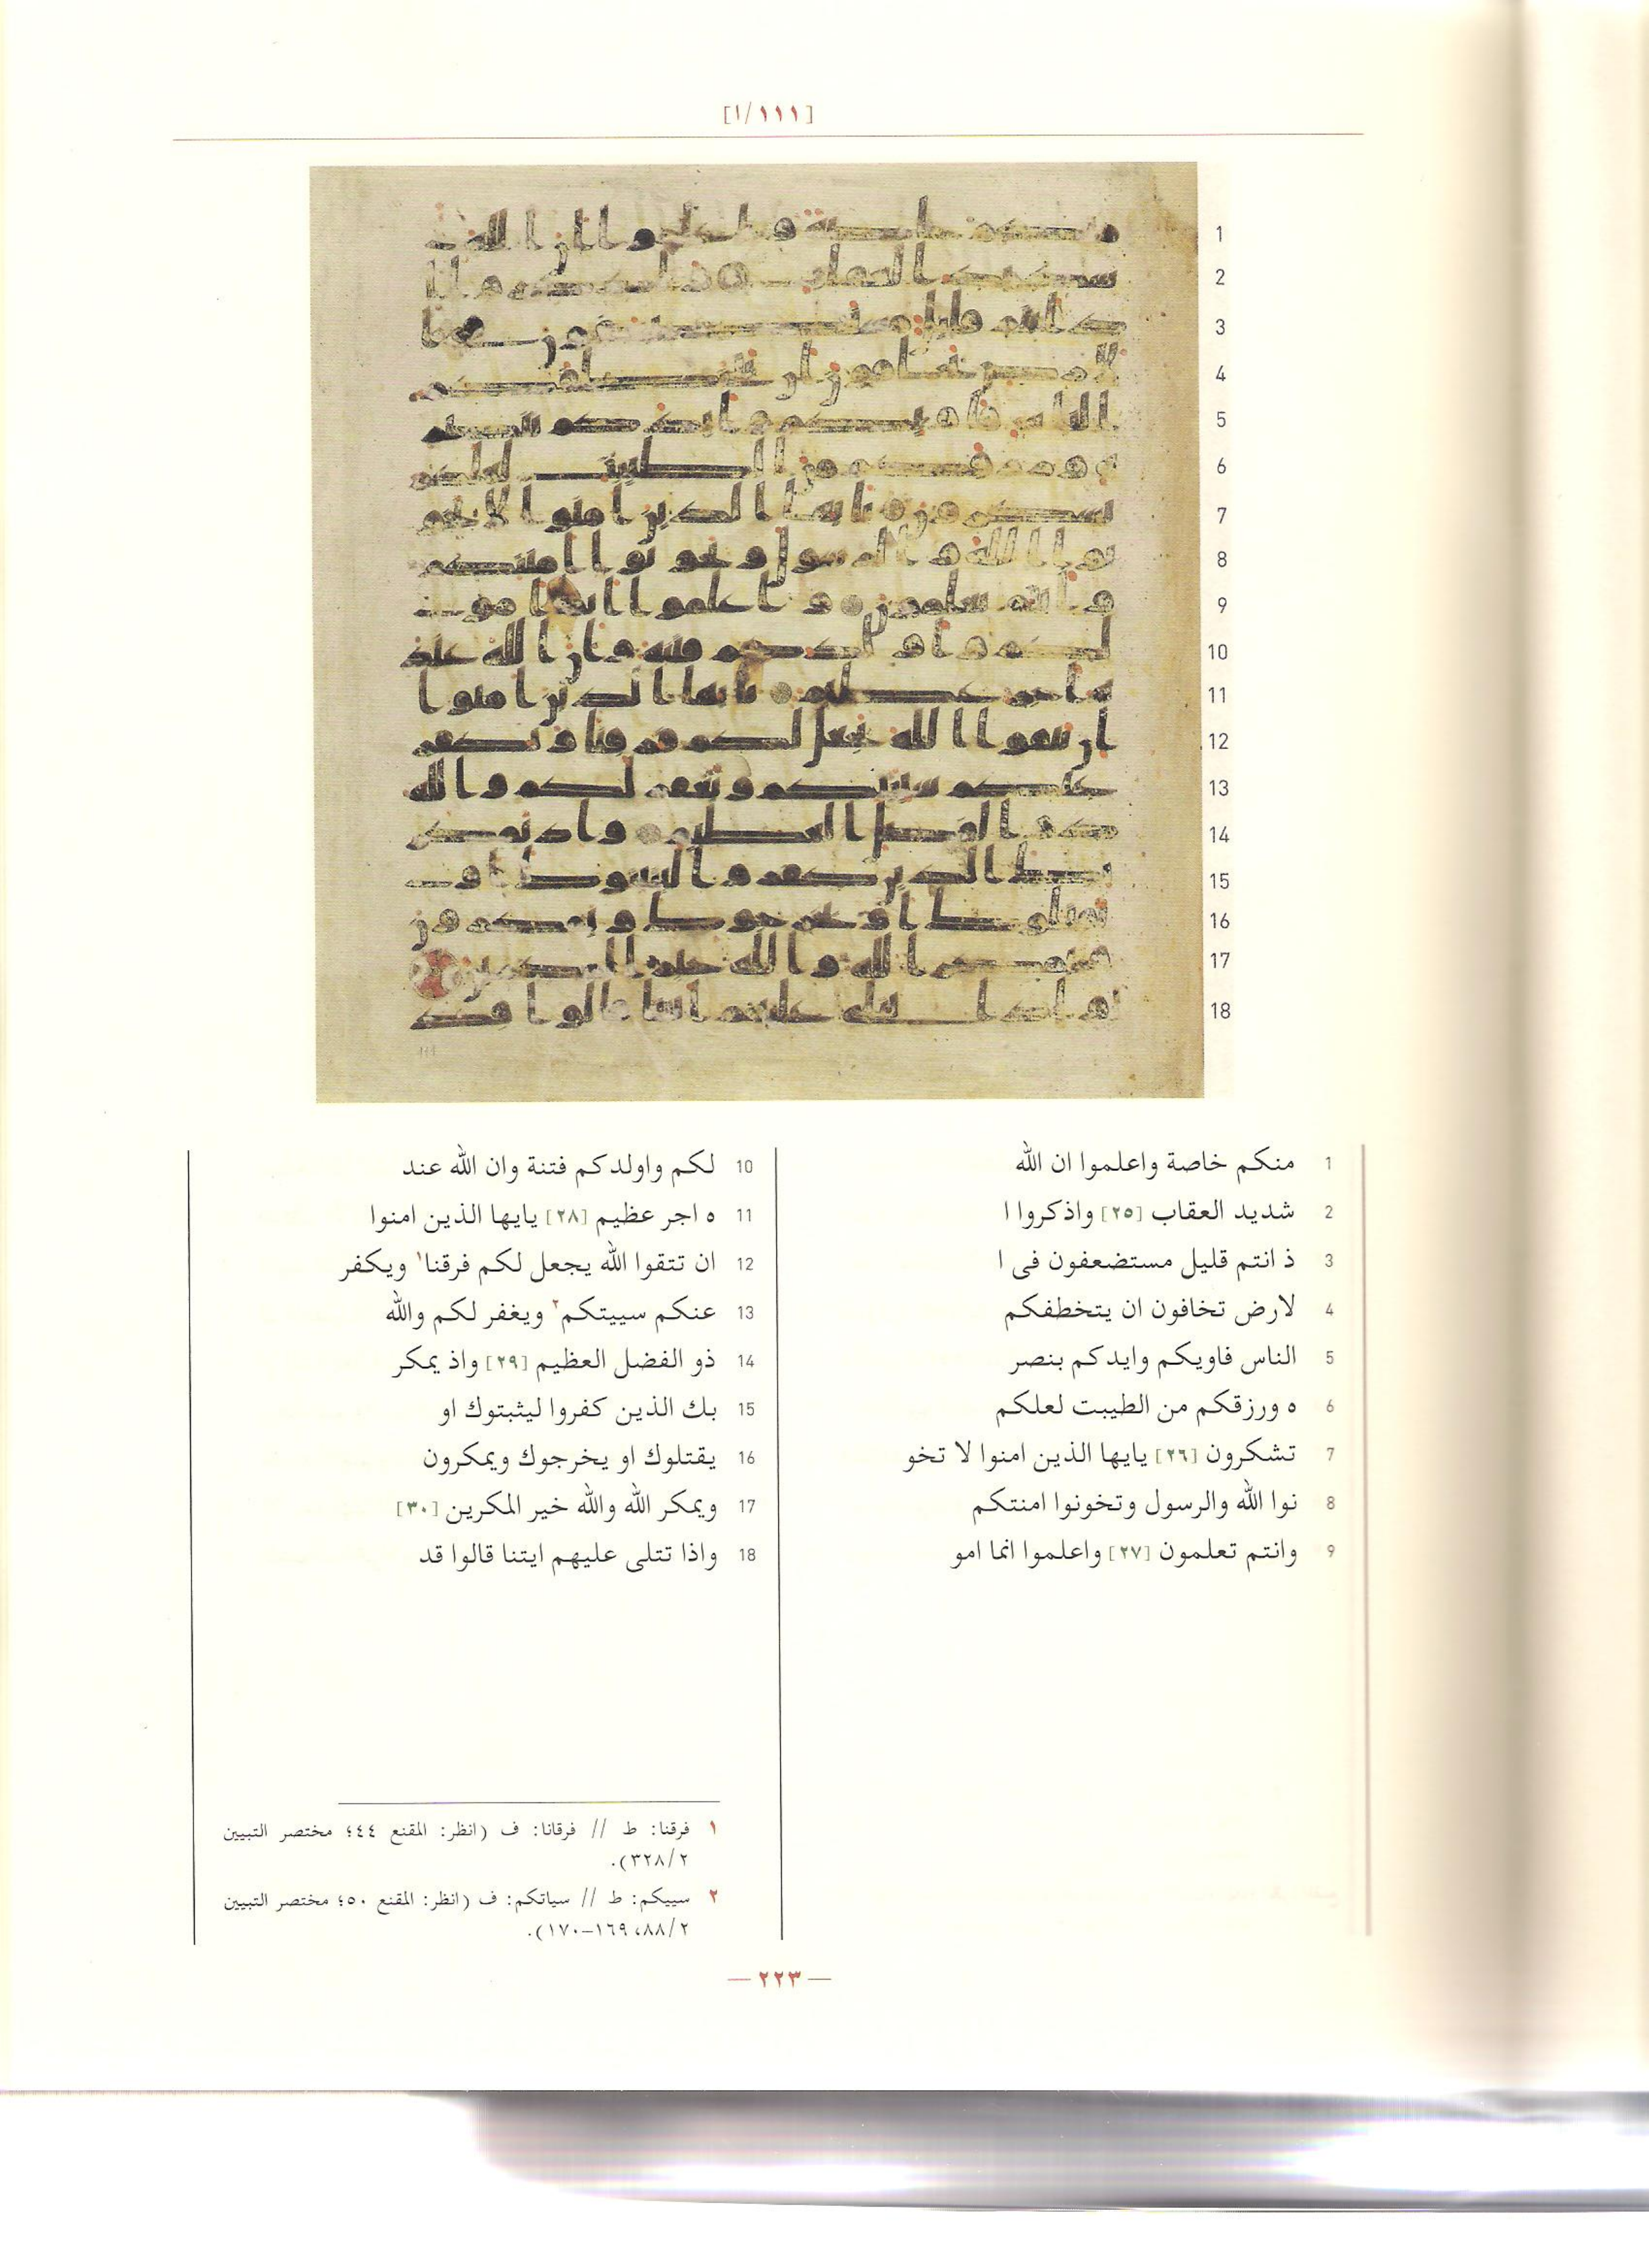 [١١١/١]
1 منكم خاصة واعلموا ان الله
2 شديد العقاب [٢٥] واذكروا ا
3 ذ انتم قليل مستضعفون فى ا
4 لارض تخافون ان يتخطفكم
5 الناس فاويكم وايدكم بنصر
6 ه ورزقكم من الطيبت لعلكم
7 تشكرون [٢٦] يايها الذين امنوا لا تخو
8 نوا الله والرسول وتخونوا امنتكم
9 وانتم تعلمون [٢٧] واعلموا انما امو
10 لكم واولدكم فتنة وان الله عند
11 ه اجر عظيم [٢٨] يايها الذين امنوا
12 ان تتقوا الله يجعل لكم فرقنا١ ويكفر
13 عنكم سييتكم٢ ويغفر لكم والله
14 ذو الفضل العظيم [٢٩] واذ يمكر
15 بك الذين كفروا ليثبتوك او
16 يقتلوك او يخرجوك ويمكرون
17 ويمكر الله والله خير المكرين [٣٠]
18 واذا تتلى عليهم ايتنا قالوا قد
١ فرقنا: ط // فرقانا: ف (انظر: المقنع ٤٤؛ مختصر التبيين
٣٢٨/٢).
٢ سييكم: ط // سياتكم: ف (انظر: المقنع ٥٠؛ مختصر التبيين
٨٨/٢، ١٦٩–١٧٠).
— ٢٢٣ —